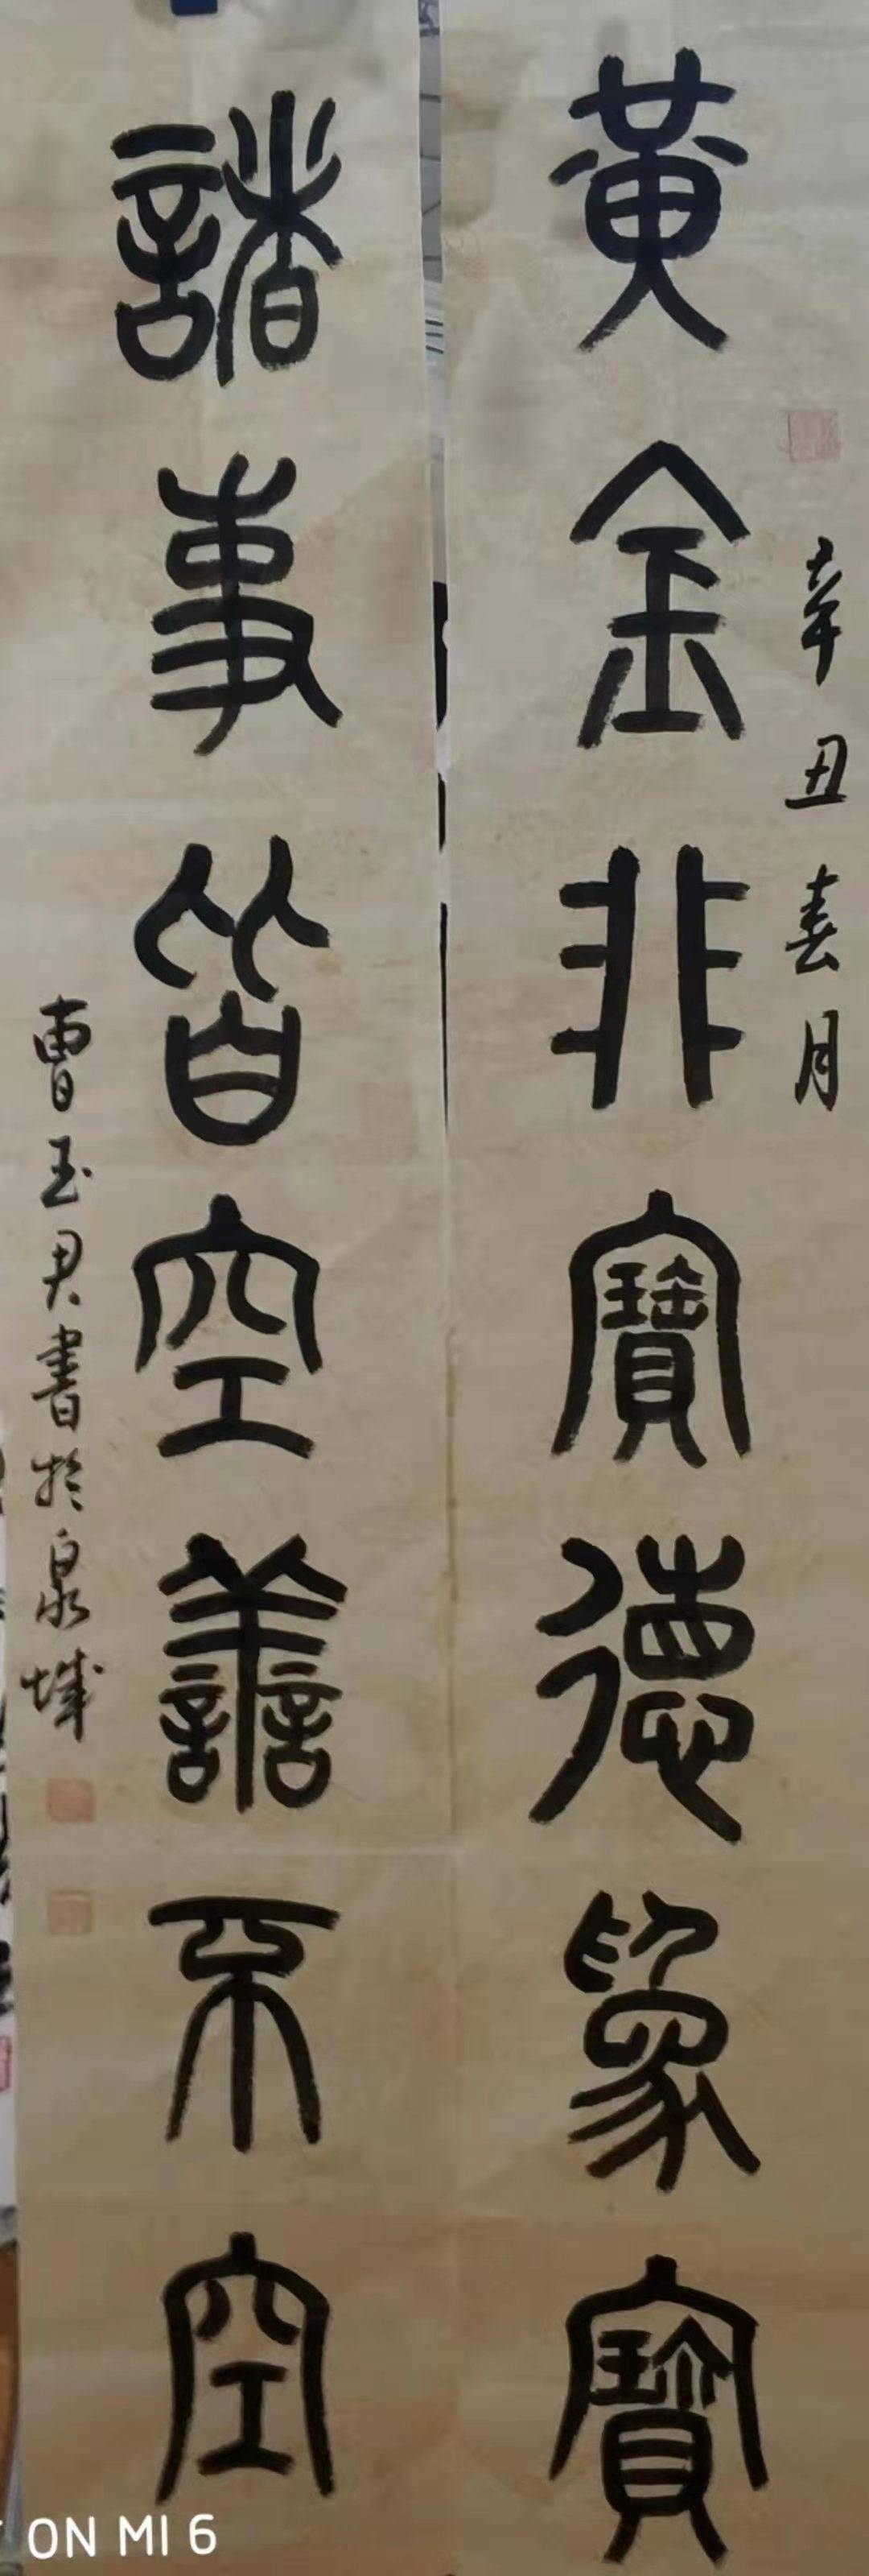 辛丑春月
黃金非寶德爲寶
諸事皆空善不空
曹玉君書於泉城
ON MI 6